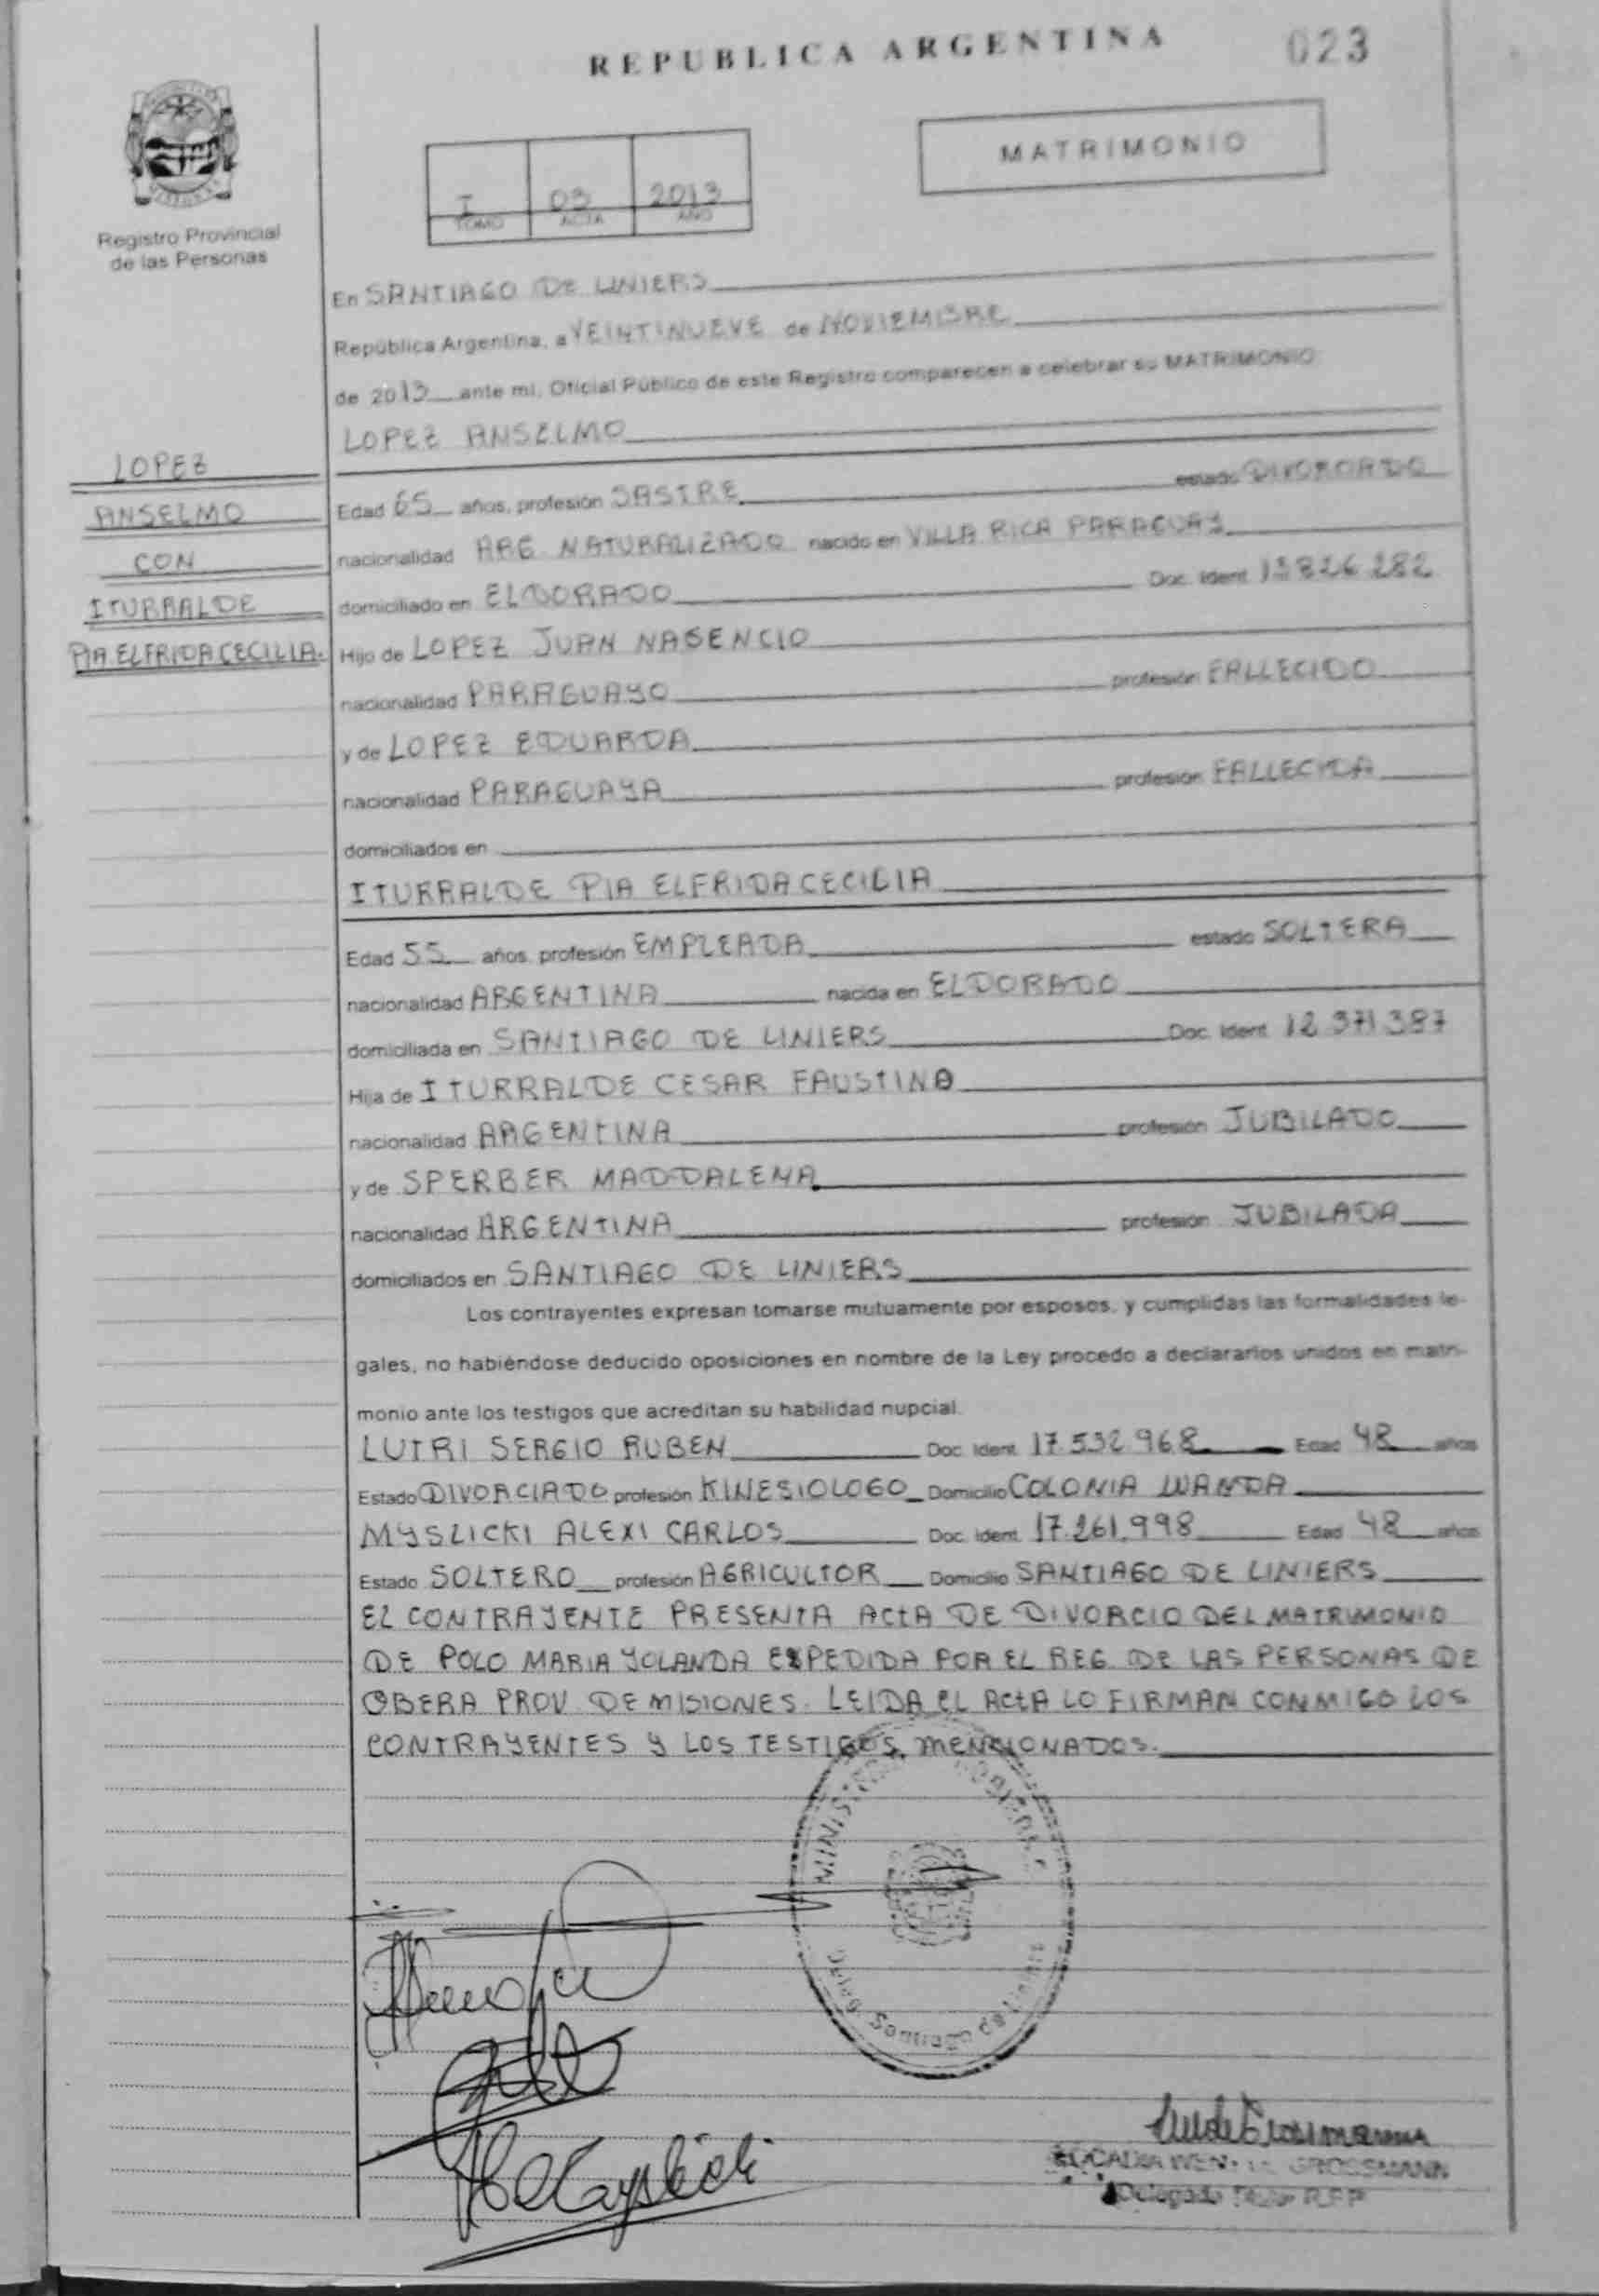 REPUBLICA ARGENTINA
023
MATRIMONIO
I 03 2013
TOMO ACTA AÑO
Registro Provincial
de las Personas
En SANTIAGO DE LINIERS
República Argentina, a VEINTINUEVE de NOVIEMBRE
de 2013 ante mi, Oficial Público de este Registro comparecen a celebrar su MATRIMONIO:
LOPEZ ANSELMO
LOPEZ
ANSELMO
CON
ITURRALDE
PIA ELFRIDA CECILIA.
Edad 65 años, profesión SASTRE estado DIVORCIADO
nacionalidad ARG NATURALIZADO nacido en VILLA RICA PARAGUAY
domiciliado en ELDORADO Doc. Ident. 13826282
Hijo de LOPEZ JUAN NASENCIO
nacionalidad PARAGUAYO profesión FALLECIDO
y de LOPEZ EDUARDA
nacionalidad PARAGUAYA profesión FALLECIDA
domiciliados en
ITURRALDE PIA ELFRIDA CECILIA
Edad 55 años, profesión EMPLEADA estado SOLTERA
nacionalidad ARGENTINA nacida en ELDORADO
domiciliada en SANTIAGO DE LINIERS Doc. Ident. 12 371 387
Hija de ITURRALDE CESAR FAUSTINO
nacionalidad ARGENTINA profesión JUBILADO
y de SPERBER MADDALENA
nacionalidad ARGENTINA profesión JUBILADA
domiciliados en SANTIAGO DE LINIERS
Los contrayentes expresan tomarse mutuamente por esposos, y cumplidas las formalidades le-
gales, no habiéndose deducido oposiciones en nombre de la Ley procedo a declararlos unidos en matri-
monio ante los testigos que acreditan su habilidad nupcial.
LUTRI SERGIO RUBEN Doc. Ident. 17.532 968 Edad 48 años
Estado DIVORCIADO profesión KINESIOLOGO Domicilio COLONIA WANDA
MYSLICKI ALEXI CARLOS Doc. Ident. 17.261.998 Edad 48 años
Estado SOLTERO profesión AGRICULTOR Domicilio SANTIAGO DE LINIERS
EL CONTRAYENTE PRESENTA ACTA DE DIVORCIO DEL MATRIMONIO
DE POLO MARIA YOLANDA EXPEDIDA POR EL REG. DE LAS PERSONAS DE
OBERA PROV. DE MISIONES. LEIDA EL ACTA LO FIRMAN CONMIGO LOS
CONTRAYENTES Y LOS TESTIGOS MENCIONADOS.
Santiago de
GROSSMANN
Delegado R.P.P